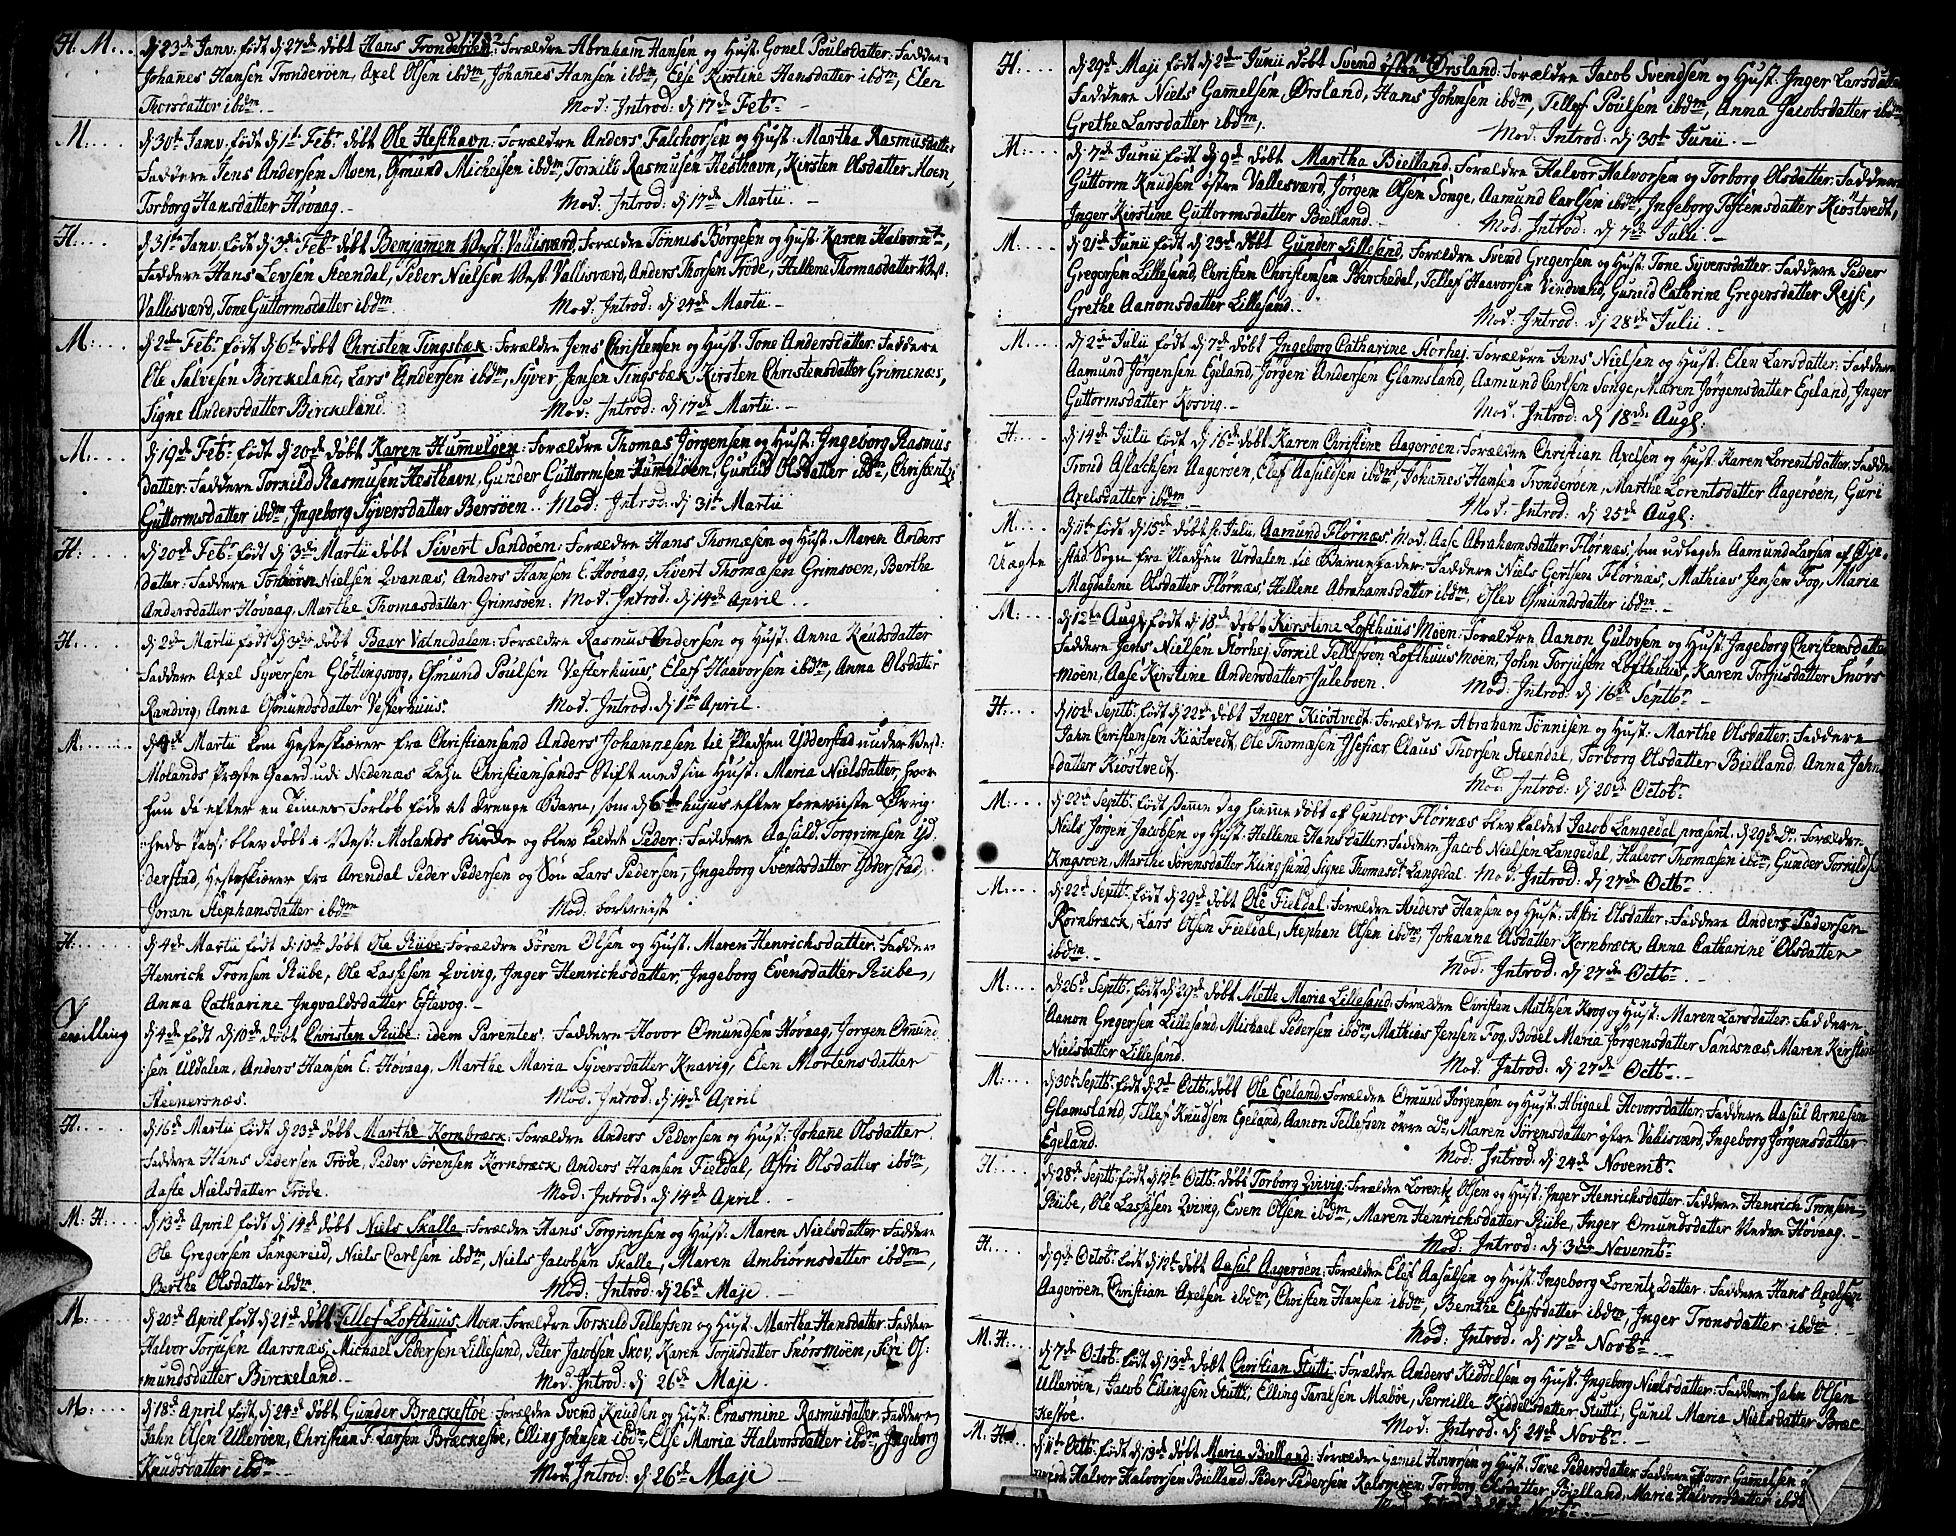 1782
H. M. dj 23de Janv: født dj 27de døbt Hans Tronderøen: Forældre Abraham Hansen og Hust: Gonel Poulsdatter: Faddere
Johanes Hansen Tronderøen, Axel Olsen ibdm, Johanes Hansen ibdm, Else Kirstine Hansdatter ibdm, Elen
Thorsdatter ibdm. Mod: Introd: dj 17de Febr
M: dj 30te Janv: født dj 1te Febr døbt Ole Hesthavn: Forældre Anders Falchorsen og Hust: Martha Rasmusdatter
Faddere Jens Andersen Moen, Osmund Michelsen ibdm, Tornild Rasmusen Hesthavn, Kirsten Olsdatter Moen,
Torborg Hansdatter Hovaag. Mod: Introd: dj 17de Martii.
H. dj 31te Janv. født dj 3die Febr døbt Benjamen Vest: Vallisværd, Forældre Tonnis Borgesen og Hust: Karen Halvorsdtr,
Faddere Hans Levsen Steendal, Peder Nielsen Vest: Vallisværd, Anders Thorsen Trøde, Hellene Thomasdatter Vest:
Vallisværd, Tone Guttormsdatter ibdm. Mod: Introd: dj 24de Martii
M: dj 2den Febr født dj 6te døbt Christen Tingsbæk: Forældre Jens Christensen og Hust: Tone Andersdatter: Faddere
Ole Salvesen Birckeland, Lars Andersen ibdm, Syver Jensen Tingsbæk Kirsten Christensdatter Grimenæs,
Signe Andersdatter Birckeland. Mod: Introd: dj 17de Martii.
M: dj 19de Febr født dj 20de døbt Karen Humeløen: Forældre Thomas Jørgensen og Hust: Ingeborg Rasmus
datter: Faddere Tornild Rasmusen Hesthavn, Gunder Guttormsen Humeløen, Gunild Olsdatter ibdm, Christentz
Guttormsdatter ibdm, Ingeborg Syversdatter Bersøen. Mod: Introd: dj 31te Martii
H: dj 20de Febr født dj 3die Martii døbt Sivert Sandøen: Forældre Hans Thomæsen og Hust: Maren Anders
datter: Faddere Nielsen Qvanæs, Anders Hansen E: Hovaag, Sivert Thomæsen Grimsøen, Berthe
Andersdatter Hovaag, Marthe Thomasdatter Grimsøen: Mod: Introd: dj 14de April
H. dj 2de Martii født dj 3die døbt Baar Valnedalen: Forældre Rasmus Andersen og Hust: Anna Knudsdatter
Faddere Axel Syversen Glottingsvog, Osmund Poulsen Vesterhuus, Elef Haavorsen ibdm, Anna Olsdatter
Randvig, Anna Osmundsdatter Vesterhuus. Mod: Introd: dj 1te April.
M. dj Martii kom Hesteskiærer fra Christiansand Anders Johannesen til Pladsen Ydderstad under Vest:
Molands Præste Gaard udi Nedenæs Lehn Christiansands Stift med sin Hust: Maria Nielsdatter, hvor
hun da efter en Times Forløb føde et Drenge Barn, som dj 6te hujus efter foreviiste Øvrig-
heds Pas: blev døbt i Vest: Molands Kirke og blev kaldet Peder: Faddere Aasuld Torgrimsen Yd-
derstad, Hesteskiærer fra Arendal Peder Pedersen og Søn Lars Pedersen, Ingeborg Svendsdatter Ydderstad,
Joran Stephansdatter ibdm Mod: bortreyst
H. dj 4de Martii født dj 10de døbt Ole Ribe: Forældre Søren Olsen og Hust: Maren Henrichsdatter: Faddere
Henrich Tronsen Ribe, Ole Lassesen Qvivig, Inger Henrichsdatter, Ingeborg Evensdatter Ribe,
Anna Catharine Ingvaldsdatter Estevog.
Tvilling dj 4de født dj 10de døbt Christen Ribe: idem Parentes: Faddere Hovor Omundsen Hovaag, Jorgen Omund-
sen Uldalen, Anders Hansen E: Hovaag, Marthe Maria Syversdatter Knavig, Elen Mortensdatter
Steenersnæs. Mod: Introd: dj 14de April
H. dj 16de Martii født dj 23de døbt Marthe Kornbræck: Forældre Anders Pedersen og Hust: Johane Olsdatter.
Faddere Hans Pedersen Trøde, Peder Sørensen Kornbræck, Anders Hansen Fieldal, Astri Olsdatter ibdm,
Aaste Nielsdatter Trøde. Mod: Introd: dj 14de April.
M. H. dj 13de April født dj 14de døbt Niels Skalla: Forældre Hans Torgrimsen og Hust: Maren Nielsdatter: Faddere
Ole Gregersen Tangereid, Niels Carlsen ibdm, Niels Jacobsen Skalle, Maren Ambiørnsdatter ibdm,
Berthe Olsdatter ibdm. Mod: Introd: dj 26de Maje.
M: dj 20de April født dj 21de døbt Tellef Lofthuus Moen: Forældre Torkild Tellefsen og Hust: Martha Hansdatter: Faddere
Halvor Torjusen Aarsnæs, Michael Pedersen Lillesand, Peter Jacobsen Skov, Karen Torjusdatter Snorsmoen, Siri Os-
mundsdatter Birckeland. Mod: Introd: dj 26de Maje.
M: dj 18de April født dj 24de døbt Gunder Brackestøe: Forældre Svend Knudsen og Hust: Erasmine Rasmusdatter: Faddere
Jahn Olsen Ullerøen, Christian F: Larsen Brackestøe, Elling Johnsen ibdm, Else Maria Halvorsdatter ibdm, Ingeborg
Knudsdatter ibdm. Mod: Introd: dj 26de Maje
H: dj 29de Maji født dj 2de Junii døbt Svend østre Ørsland: Forældre Jacob Svendsen og Hust: Inger Larsdatter
Faddere Niels Gamelsen Ørsland, Hans Johnsen ibdm, Tellef Poulsen ibdm, Anna Jacobsdatter ibdm
Grethe Larsdatter ibdm. Mod: Introd: dj 30te Junii.
M: dj 7de Junii født dj 9de døbt Martha Bielland: Forældre Halvor Halvorsen og Torborg Olsdatter: Faddere
Guttorm Knudsen østre Vallesværd, Jørgen Olsen Songe, Aamund Carlsen ibdm, Ingeborg Tostensdatter Kiøstvedt,
Inger Kirstine Guttormsdatter Bielland. Mod: Introd: dj 7de Julii.
M. dj 21de Junii født dj 23de døbt Gunder Lillesand: Forældre Svend Gregersen og Hust: Tone Syversdatter: Faddere Peder
Gregersen Lillesand, Christen Christensen Birchedal, Tellef Haavorsen Vindvald, Guneld Cathrine Gregersdatter Rejse,
Grethe Aanonsdatter Lillesand. Mod: Introd: dj 28de Julii.
M. dj 2de Julii født dj 7de døbt Ingeborg Catharine Storhej: Forældre Jens Nielsen og Hust: Elen Larsdatter: Faddere
Aamund Jörgensen Egeland, Jörgen Andersen Glamsland, Aamund Carlsen Songe, Maren Jørgensdatter Egeland, Inger
Guttormsdatter Kosvig. Mod: Introd: dj 18de Aug:
H. dj 14de Julii født dj 16de døbt Karen Christine Aagerøen: Forældre Christian Axelsen og Hust: Karen Lorentsdatter: Faddere
Trond Aslachsen Aagerøen, Elef Aasulsen ibdm, Johanes Hansen Tronderøen, Marthe Lorentsdatter Aagerøen, Guri
Axelsdatter ibdm. Mod: Introd: dj 25de Aug:
M. Uægte dj 11te født dj 15de døbt Julii Aamund Flornæs: Mod: Aase Abrahamsdatter Flørnæs, som udlagde Aamund Larsen af Øye-
stad Sogn fra Pladsen Urdalen til Barnefader: Faddere Niels Gertsen Flornæs, Mathias Jensen Fog, Maria
Magdalene Olsdatter Flornæs, Hellene Abrahamsdatter ibdm, Eslev Osmundsdatter ibdm.
M: dj 12te Aug: født dj 18de døbt Kirstine Lofthuus Moen: Forældre Aanon Gulovsen og Hust: Ingeborg Christensdatter
Faddere Jens Nielsen Storhej, Tornil Tellefsen Lofthuus Moen, John Torjusen Lofthuus, Karen Torjusdatter Snørs
moen, Aase Kirstine Andersdatter Juleboen. Mod: Introd: dj 16de Septbr
H. dj 10de Septb: født dj 22de døbt Inger Kiöstvedt: Forældre Abraham Tønnisen og Hust: Marthe Olsdatter: Faddere
Jahn Christensen Kiöstvedt, Ole Thomæsen, Claus Thorsen Steendal, Torborg Olsdatter Bielland, Anna Jahns
datter Kiöstvedt. Mod: Introd: dj 20de Octobr
M: dj 22de Septb: født samme Dag hiemedøbt af Guntor Flornæs blev kaldet Jacob Langedal, præsent. dj 29de Do. Forældre
Niels Jørgen Jacobsen og Hust: Hellene Hansdatter: Faddere Jacob Nielsen Langedal, Halvor Thomæsen ibdm, Gunder Tornildsen
Kragsoen, Marthe Sorensdatter Kungsund, Signe Thomasdt: Langedal. Mod: Introd: dj 27de Octbr
M. dj 22de Septb: født dj 29de døbt Ole Fieldal: Forældre Anders Hansen og Hust: Astri Olsdatter: Faddere Anders Pedersen
Kornbræck, Lars Olsen Fieldal, Stephan Olsen ibdm, Johanna Olsdatter Kornbræck, Anna Catharine Olsdatter
ibdm. Mod: Introd: dj 27de Octbr
M. dj 26de Septb: født dj 29de døbt Mette Maria Lillesand: Forældre Christen Mathsen Krog og Hust: Maren Larsdatter: Faddere
Aanon Gregersen Lillesand, Michael Pedersen ibdm, Mathias Jensen Fog, Bodel Maria Jørgensdatter Sandsnæs, Maren Kirstine
Nielsdatter Lillesand. Mod: Introd: dj 27de Octbr
M: dj 30te Septb: født dj 2de Octbr døbt Ole Egeland: Forældre Omund Jørgensen og Hust: Abigael Hovorsdatter: Faddere Aasul Arnesen
Glamsland, Tellef Knudsen Egeland, Aanon Tellefsen övre Do, Maren Sörensdatter östre Vallisværd, Ingeborg Jørgensdatter
Egeland. Mod: Introd: dj 24de Novembr
H. dj 28de Septb: født dj 12te Octb: døbt Torborg Qvivig: Forældre Lorentz Olsen og Hust: Inger Henrichsdatter: Faddere Henrich Tronsen
Ribe, Ole Lassesen Qvivig, Even Olsen ibdm, Maren Henrichsdatter Ribe, Inger Omundsdatter Neder Hovaag.
Mod: Introd: dj 3die Novembr
H. dj 9de Octob: født dj 12te døbt Aasul Aagerøen: Forældre Elef Aasulsen og Hust: Ingeborg Lorentzdatter: Faddere Hans Axelsen
Aagerøen, Christian Axelsen ibdm, Christen Hansen ibdm, Benthe Elefsdatter ibdm, Inger Tronsdatter ibdm.
Mod: Introd: dj 17de Novbr
M. H. dj 7de Octob: født dj 13de døbt Christian Stutti: Forældre Anders Kiddelsen og Hust: Ingeborg Nielsdatter: Faddere Jahn Olsen
Ullerøen, Jacob Ellingsen Stutti, Elling Taralsen Maløe, Pernille Kiddelsdatter Stutti, Gunil Maria Nielsdatter Bræc
kestøe. Mod: Introd: dj 24de Novbr
M. H. dj 11te Octb: født dj 13de døbt Maria Bielland: Forældre Gamel Hovorsen og Hust: Tone Pedersdatter: Faddere Hovor Gamelsen
Halvor Halvorsen Bielland, Peder Pedersen Kalsmoen, Torborg Olsdatter Bielland, Maria Halvorsdatter ibdm
Mod: Introd: dj 24de Novbr